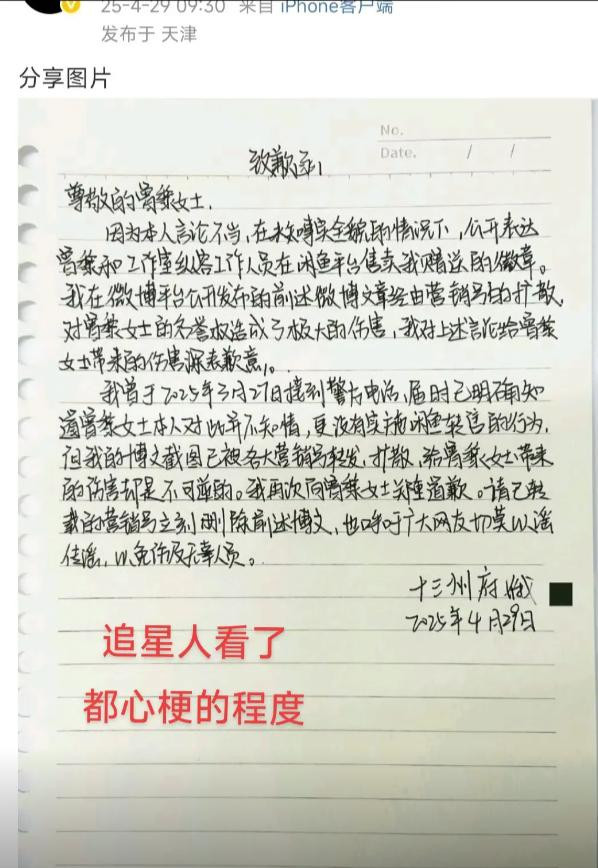 25-4-29 09:30 来自 iPhone客户端
发布于 天津
分享图片
No.
Date. / /
致歉函
尊敬的曾黎女士.
因为本人言论不当,在未博实全貌的情况下,公开表达
曾黎和工作室纵容工作人员在闲鱼平台售卖我赠送的徽章。
我在微博平台公开发布的前述微博文章经由营销号的扩散,
对曾黎女士的名誉权造成了极大的伤害,我对上述言论给曾黎
女士带来的伤害深表歉意。
我曾于2025年3月27日接到警方电话,届时已明确知
道曾黎女士本人对此并不知情,更没有实施闲鱼转售的行为,
但我的博文截图已被各大营销号转发、扩散,给曾黎女士带来
的伤害却是不可逆的。我再次向曾黎女士郑重道歉。请已转
载的营销号立刻删除前述博文,也呼吁广大网友切莫以谣
传谣,以免伤及无辜人员。
十三州府
2025年4月29日
追星人看了
都心梗的程度